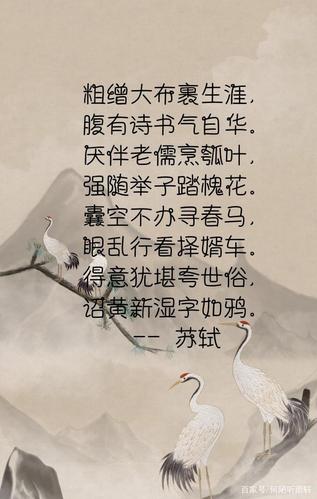 粗缯大布裹生涯,
腹有诗书气自华。
厌伴老儒烹瓠叶,
强随举子踏槐花。
囊空不办寻春马,
眼乱行看择婿车。
得意犹堪夸世俗,
诏黄新湿字如鸦。
-- 苏轼
百家号/何陋听雨轩